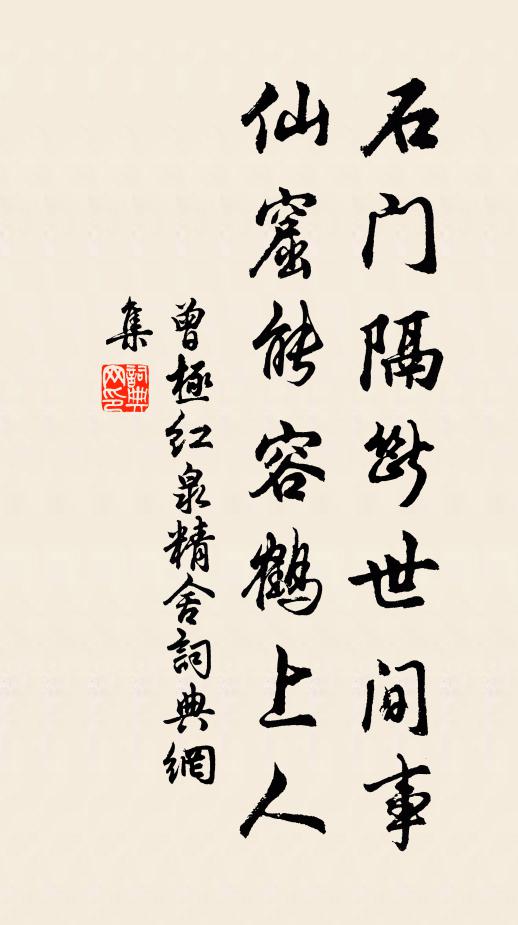 石门隔断世间事
仙窟能容鹤上人
曾極红泉精舍詞典網
集
詞典
网印